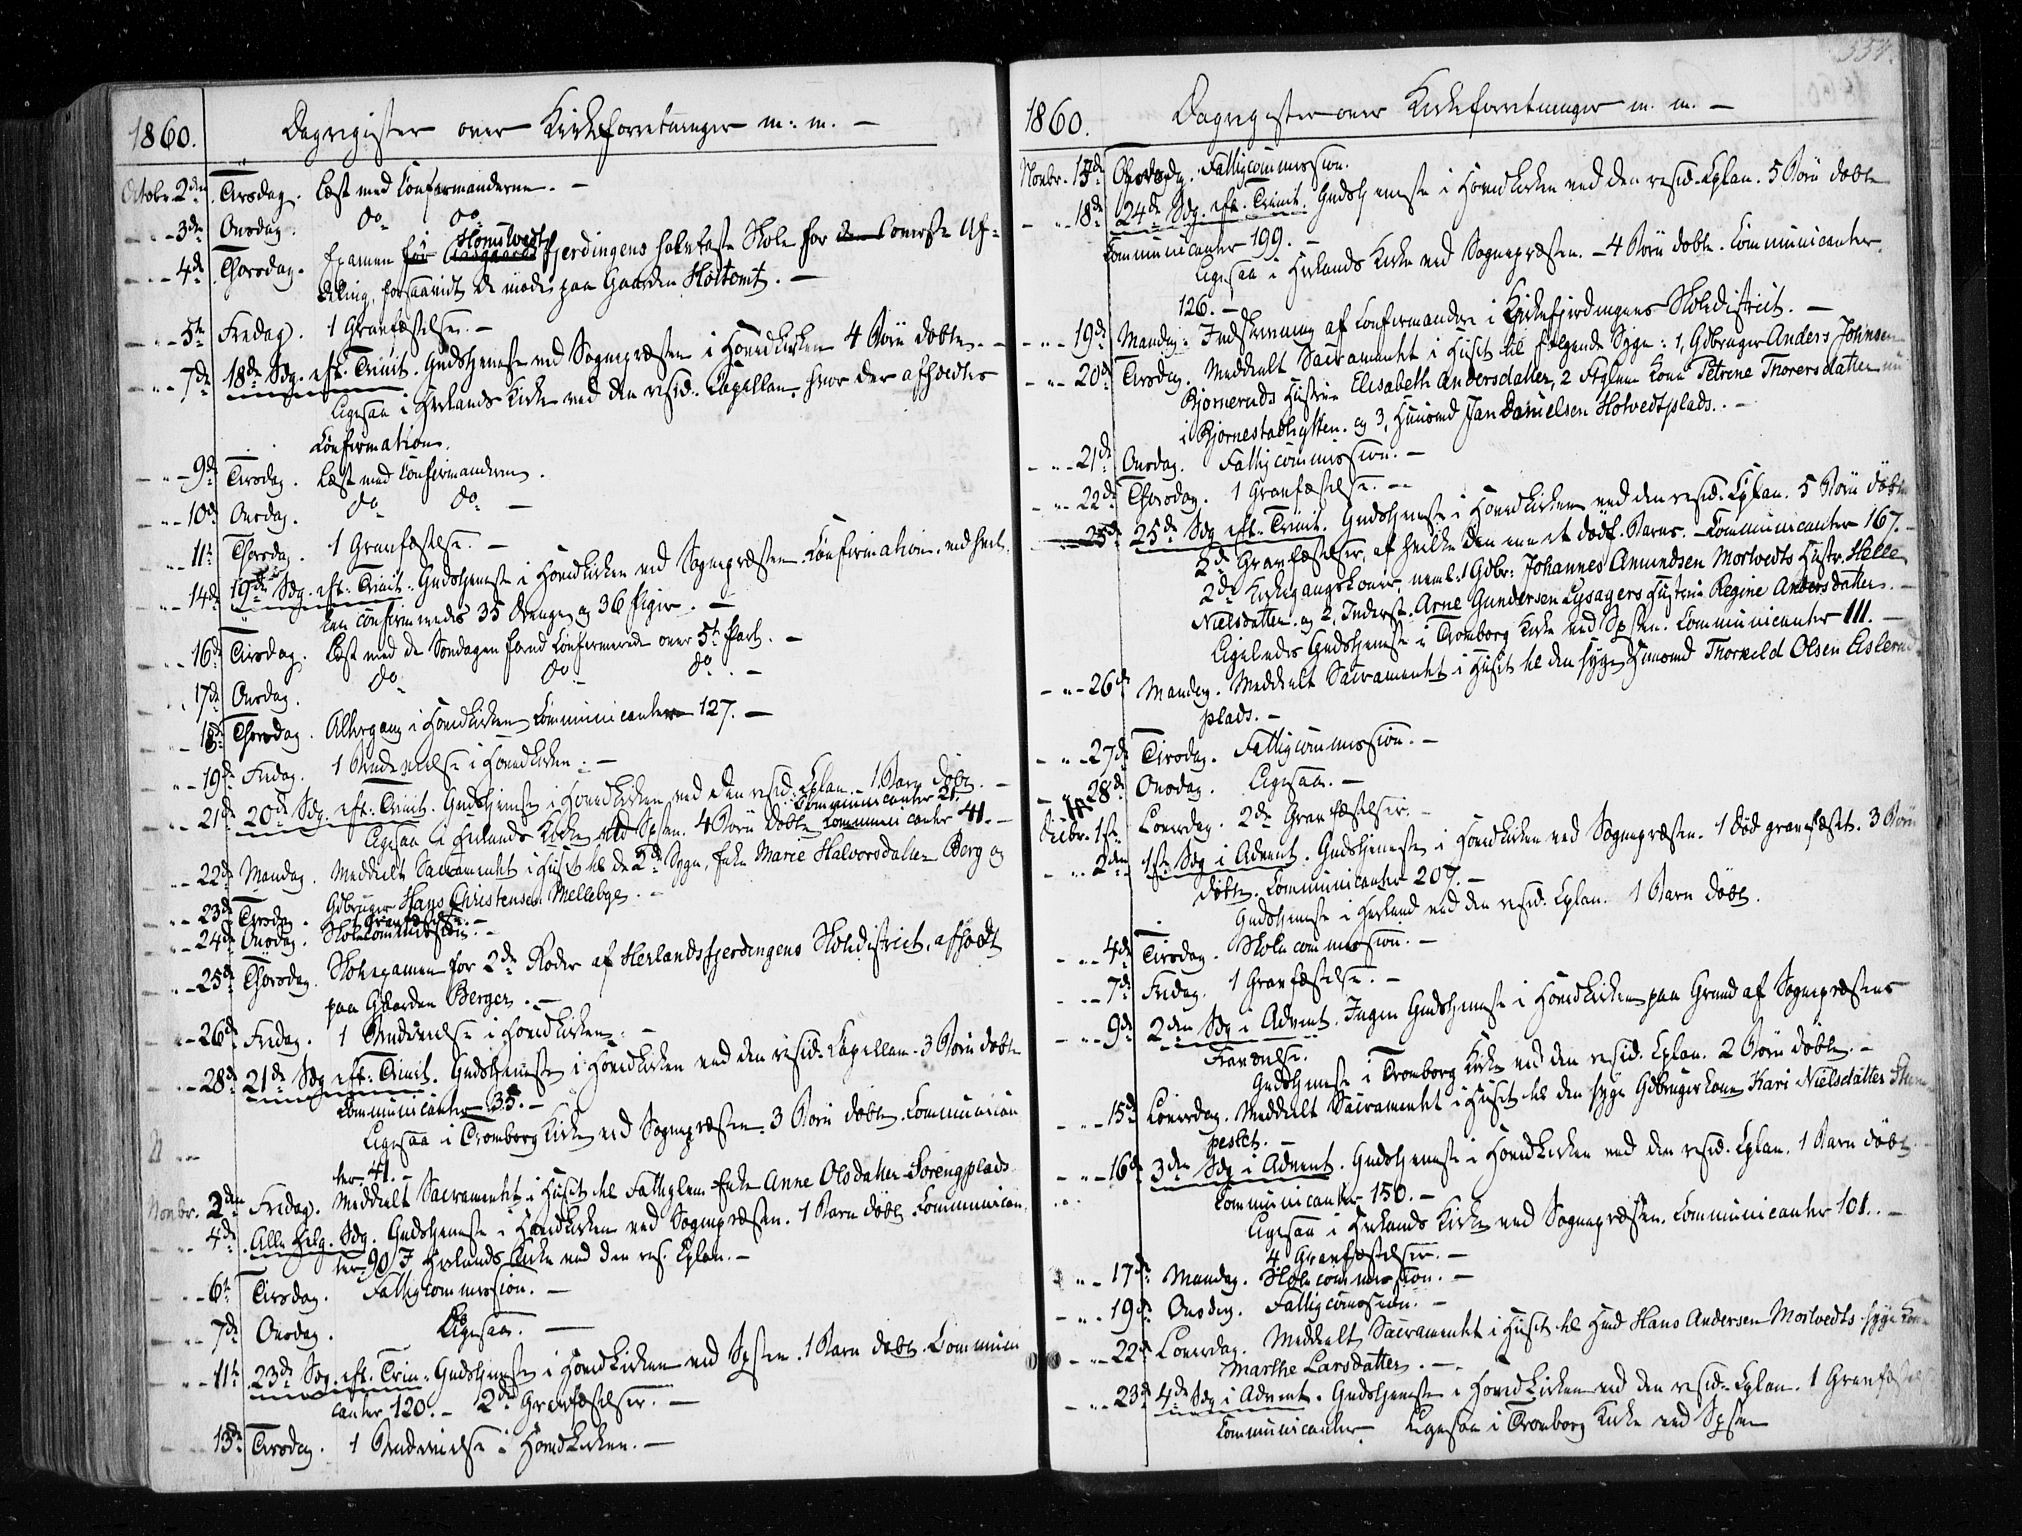 1860. Dagregister over Kirkeforretninger m: m. —
Octobr. 2den Tirsdag. Læst med Confirmanderne. —
3de Onsdag. do do
4de Thorsdag. Examen for Homstvedt fjerdingens faste Skole for øverste Af-
deling, forsaavidt de møder paa Gaarden Holtomt. —
5te Fredag. 1 Gravfæstelse. —
7de 18de Sdg. eft. Trinit. Gudstjeneste ved Sognepræsten i Hovedkirken 4 Børn døbte. —
Ligesaa i Herlands Kirke ved den resid. Capellan, hvor der afholdtes
Confirmation.
9de Tirsdag. Læst med Confirmanderne.
10de Onsdag. do do —
11te Thorsdag. 1 Gravfæstelse. —
14de 19de Sdg. eft. Trinit. Gudstjeneste i Hovedkirken ved Sognepræsten. Confirmation, ved hvil-
ken confirmeredes 35 Drenge og 36 Piger. —
16de Tirsdag. Læst med de Søndagen forud Confirmerede over 5te Part. —
17de Onsdag. do do do. —
18de Thorsdag. Altergang i Hovedkirken Communicanter 127. —
19de Fredag. 1 Brudevielse i Hovedkirken. —
21de 20de Sdg. eft. Trinit. Gudstjeneste i Hovedkirken ved den resid. Cplan. 1 Barn døbt. —
Communicanter 21.
Ligesaa i Herlands Kirke ved Spsten. 4 Børn døbte Communicanter 41. —
22de Mandag. Meddeelt Sacramentet i Huset til de 2de Syge, Enke Marie Halvorsdatter Berg og
Gdbruger Hans Christensen Mellebye. —
23de Tirsdag. 1 Gravfæstelse. —
24de Onsdag. Skolecommission. —
25de Thorsdag. Skoleexamen for 2de Roder af Herlandsfjerdingens Skoledistrict, afholdt
paa Gaarden Berger. —
26de Fredag. 1 Brudevielse i Hovedkirken. —
28de 21de Sdg eft. Trinit. Gudstjeneste i Hovedkirken ved den resid. Capellan. 3 Børn døbte
Communicanter 35. —
Ligesaa i Tromborg Kirke ved Sognepræsten. 3 Børn døbte. Communican
ter 41. —
Novbr. 2den Fredag. Meddeelt Sacramentet i Huset til Fattiglem Enke Anne Olsdatter Sorengplads
4de Alle Helg. Sdg. Gudstjeneste i Hovedkirken ved Sognepræsten. 1 Barn døbt. Communican-
ter 90 I Herlands Kirke ved den res. Cplan. —
6te Tirsdag. Fattigcommission. —
7de Onsdag. Ligesaa. —
11te 23de Sdg. eft. Trin. Gudstjeneste i Hovedkirken ved Spsten. 1 Barn døbt. Communi
canter 120. — 2de Gravfæstelser. —
13de Tirsdag. 1 Brudevielse i Hovedkirken. —
354.
1860. Dagregister over Kirkeforretninger m. m. —
Novbr. 15de Thorsdag. Fattigcommission.
18de 24de Sdg. eft. Trinit. Gudstjeneste i Hovedkirken ved den resid. Cplan. 5 Børn døbte
Communicanter 199. —
Ligesaa i Herlands Kirke ved Sognepræsten. — 4 Børn døbte. Communicanter
126. —
19de Mandag. Indskrivning af Confirmander i Kirkefjerdingens Skoledistrict. —
20de Tirsdag. Meddeelt Sacramentet i Huset til følgende Syge: 1, Gdbruger Anders Johnsen
Bjørneruds Hustru Elisabeth Andersdatter, 2 Fttglem Kone Petrine Thorersdatter
i Bjørnestadhytten. og 3, Huusmd Jan Danielsen Hotvedtplads. —
21de Onsdag. Fattigcommission. —
22de Thorsdag. 1 Gravfæstelse. —
25de 25de Sdg eft. Trinit. Gudstjeneste i Hovedkirken ved den resid. Cplan. 5 Børn døbte
2de Gravfæstelser, af hvilke den ene et dødf. Barns. — Communicanter 167. —
2de Kirkegangskoner, neml: 1 Gdbr: Johannes Amundsen Mortvedts Hustr. Helle
Nielsdatter. og 2, Inderst. Arne Gundersen Lysagers Hustru Regine Andersdatter. —
Ligeledes Gudstjeneste i Tromborg Kirke ved Spsten. Communicanter 111. —
26de Mandag. Meddeelt Sacramentet i Huset til den syge Huusmd Thorkild Olsen Eislerud
plads. —
27de Tirsdag. Fattigcommission. —
28de Onsdag. Ligesaa. —
Decbr. 1ste Løverdag. 2de Gravfæstelser. —
2den 1ste Sdg i Advent. Gudstjeneste i Hovedkirken ved Sognepræsten. 1 Død gravfæstet. 3 Børn
døbte. Communicanter 207. —
Gudstjeneste i Herland ved den resid. Cplan. 1 Barn døbt.
4de Tirsdag. Skolecommission. —
7de Fredag. 1 Gravfæstelse. —
9de 2den Sdg i Advent. Ingen Gudstjeneste i Hovedkirken paa Grund af Sognepræstens
Fraværelse.
Gudstjeneste i Tromborg Kirke ved den resid. Cplan. 2 Børn døbte. —
15de Løverdag. Meddeelt Sacramentet i Huset til den syge Gdbruger kone Kari Nielsdatter
pestet. —
16de 3die Sdg i Advent. Gudstjeneste i Hovedkirken ved den resid. Cplan. 1 Barn døbt.
Communicanter 150. —
Ligesaa i Herlands Kirke ved Sognepræsten. Communicanter 101. —
4 Gravfæstelser. —
17de Mandag. Skolecommission. —
19de Onsdag. Fattigcommission. —
22de Løverdag. Meddeelt Sacramentet i Huset til Hmd Hans Andersen Mortvedts syge Kone
Marthe Larsdatter. —
23de 4de Sdg i Advent. Gudstjeneste i Hovedkirken ved den resid. Cplan. 1 Gravfæstelse
Communicanter Ligesaa i Tromborg Kirke ved Spsten